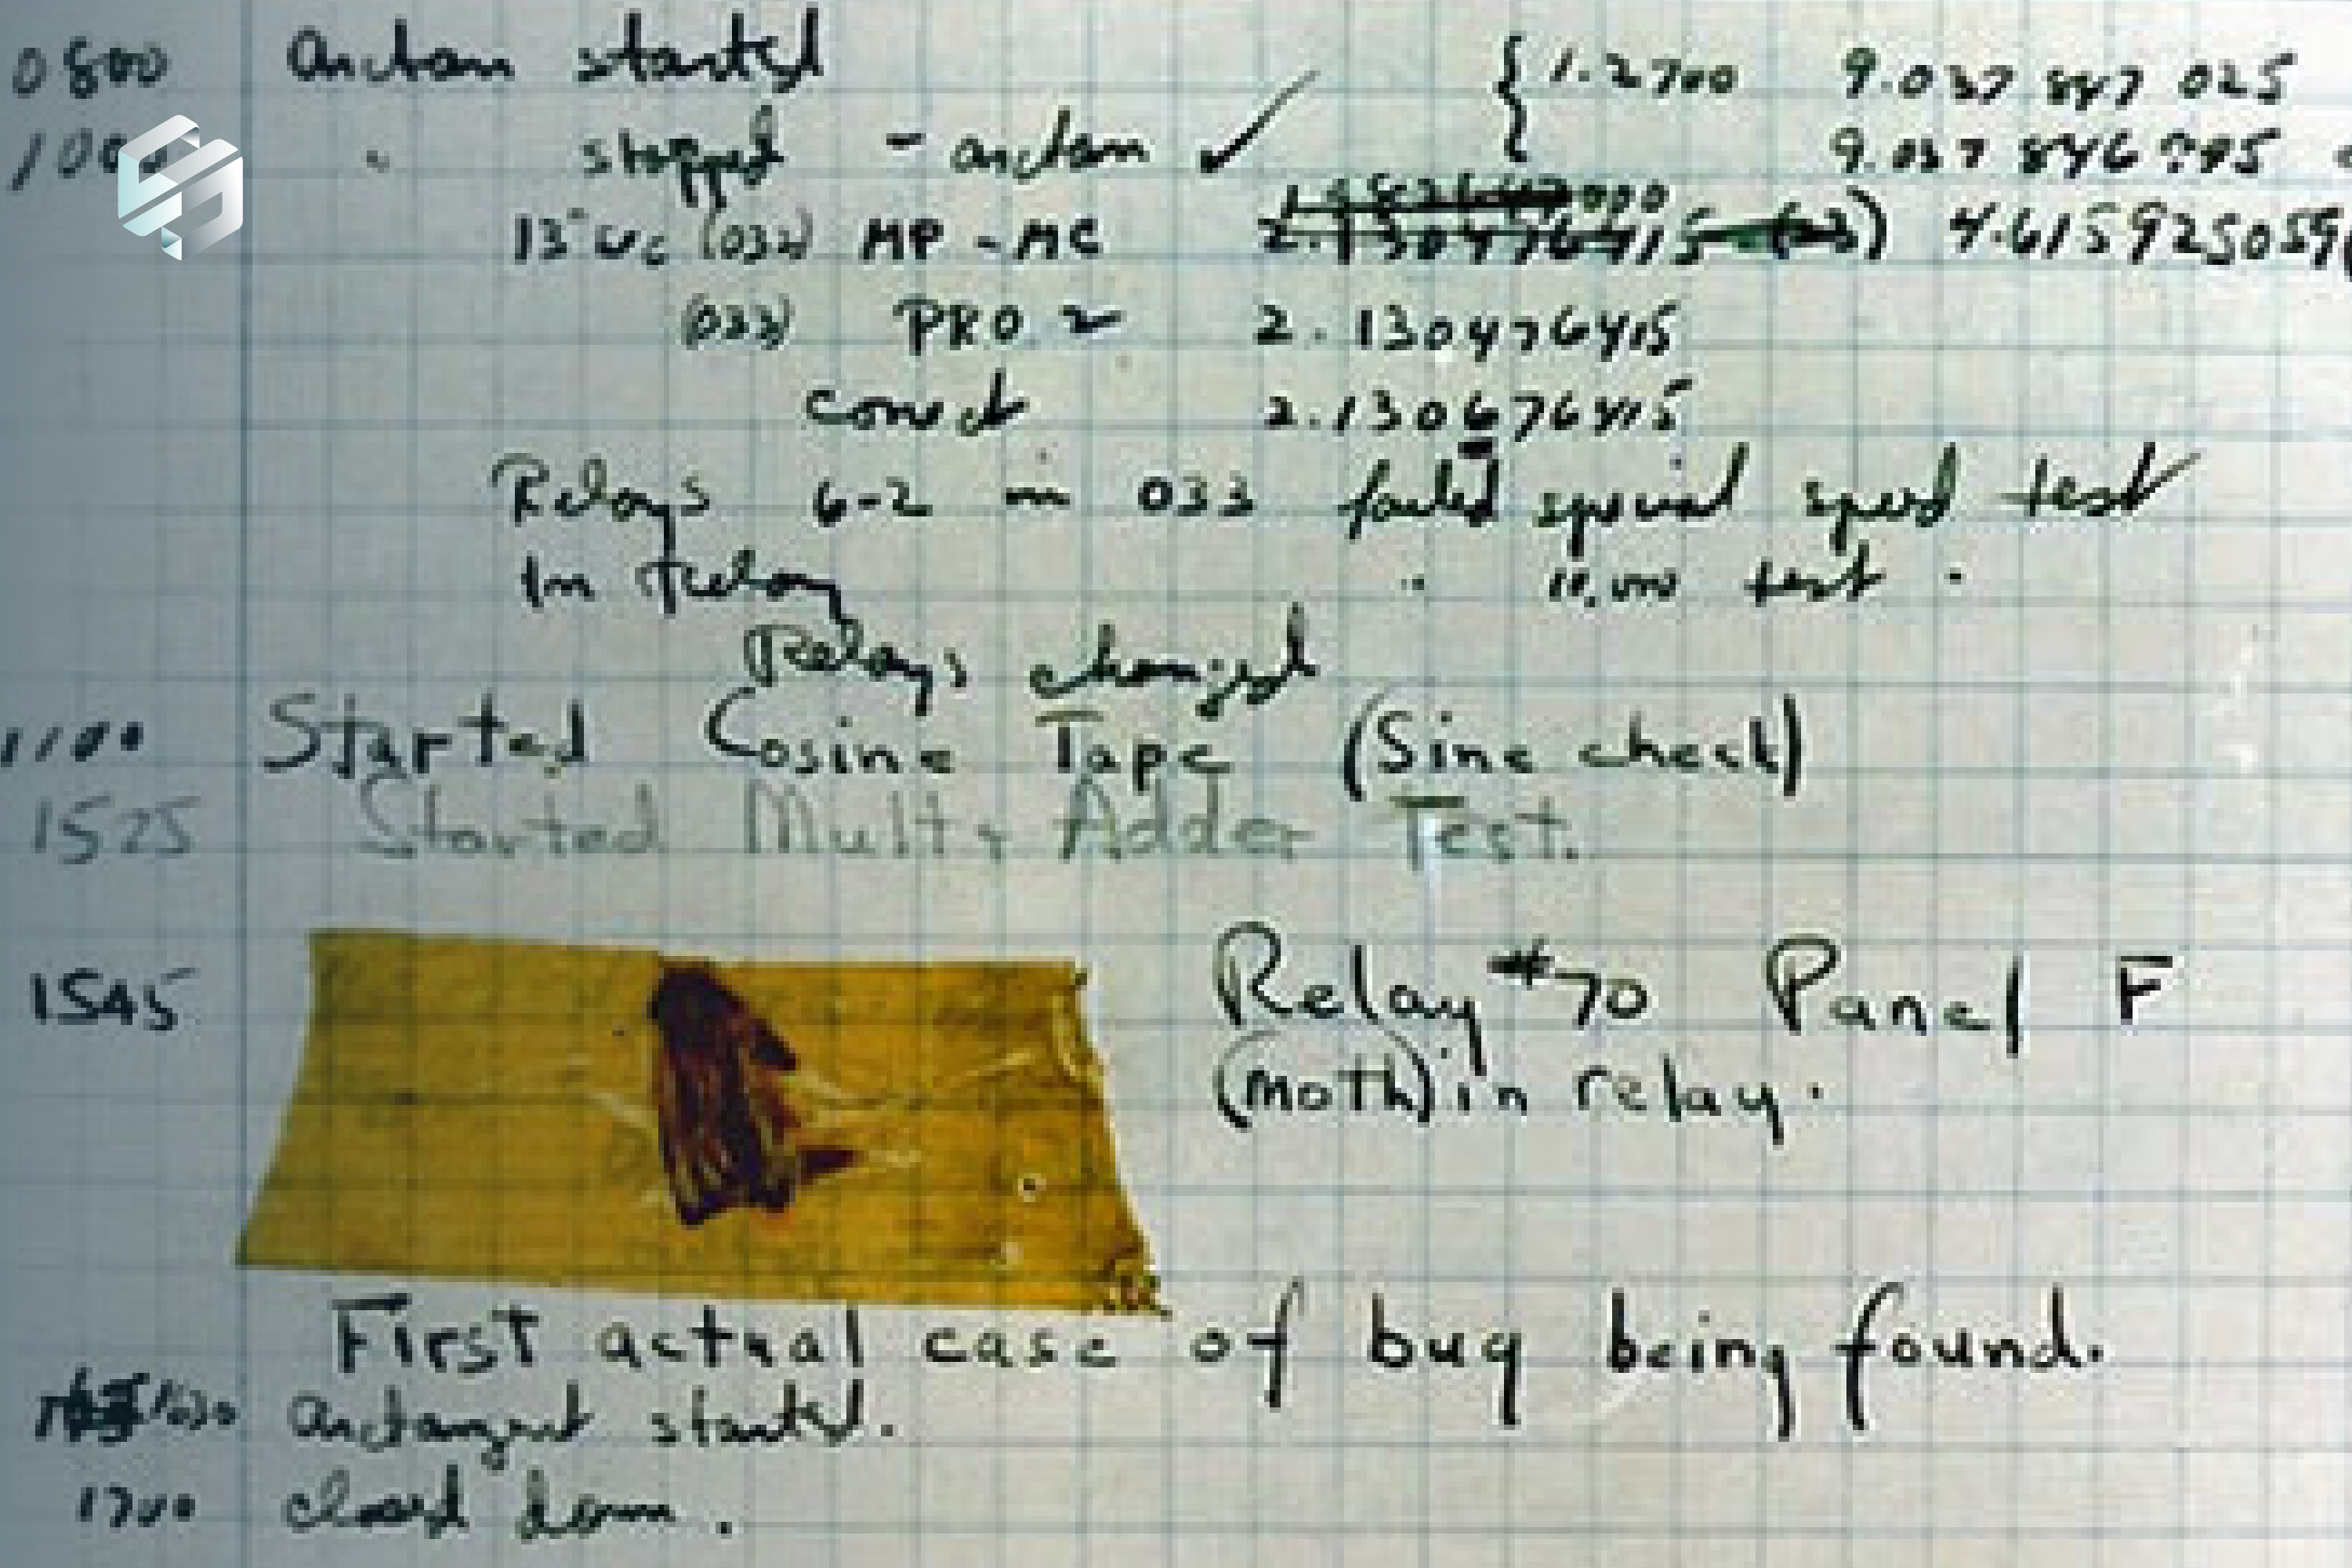 0800 Antan started { 1.2700 9.037 847 025
1000 " stopped - antan ✓ 9.037 846 995
13"uc (032) MP - MC 2.130476415 4.615925059
(033) PRO 2 2.130476415
conect 2.130676415
Relays 6-2 in 033 failed special speed test
In relay " 11.000 test .
Relays changed
1100 Started Cosine Tape (Sine check)
1525 Started Mult+ Adder Test.
1545 Relay #70 Panel F
(moth) in relay.
First actual case of bug being found.
1630 antangent started.
1700 closed down.